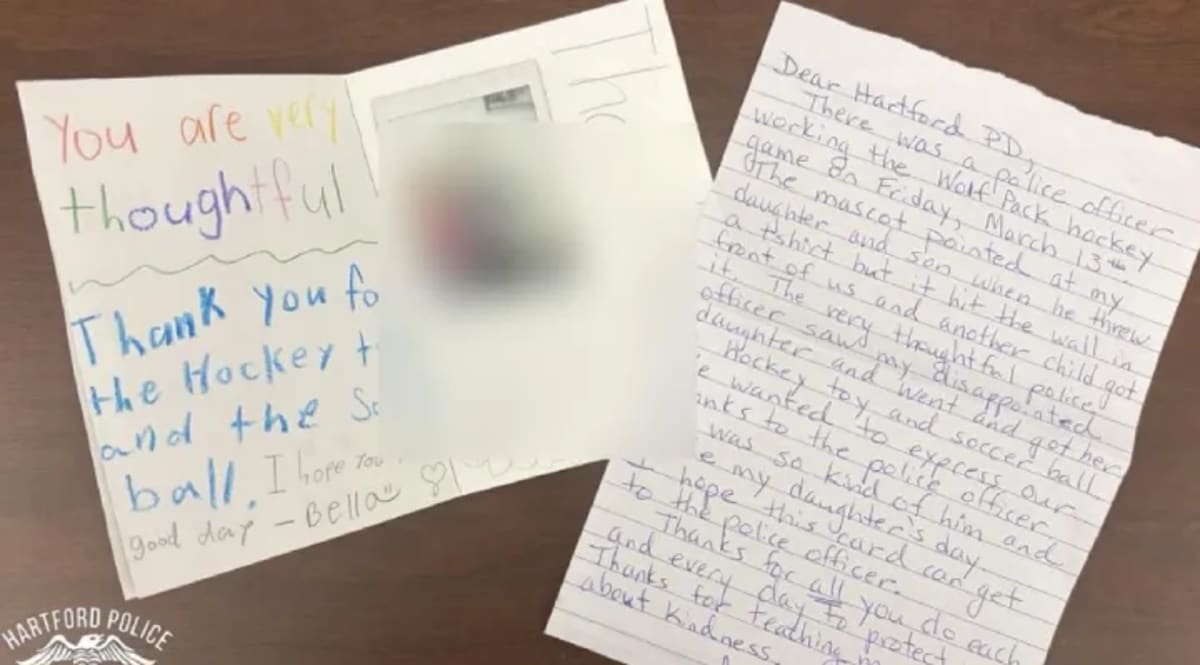 You are very
thoughtful
Thank you fo
the Hockey t
and the So
ball. I hope you
good day - Bella
Dear Hartford PD,
There was a police officer
working the Wolf Pack hockey
game on Friday, March 13th.
The mascot pointed at my
daughter and son when he threw
a tshirt but it hit the wall in
front of us and another child got
it. The very thoughtful police
officer saw my disappointed
daughter and went and got her
Hockey toy and soccer ball
e wanted to express our
anks to the police officer
was so kind of him and
e my daughter's day.
I hope this card can get
to the police officer.
Thanks for all you do each
and every day to protect
Thanks for teaching m
about kindness.
HARTFORD POLICE